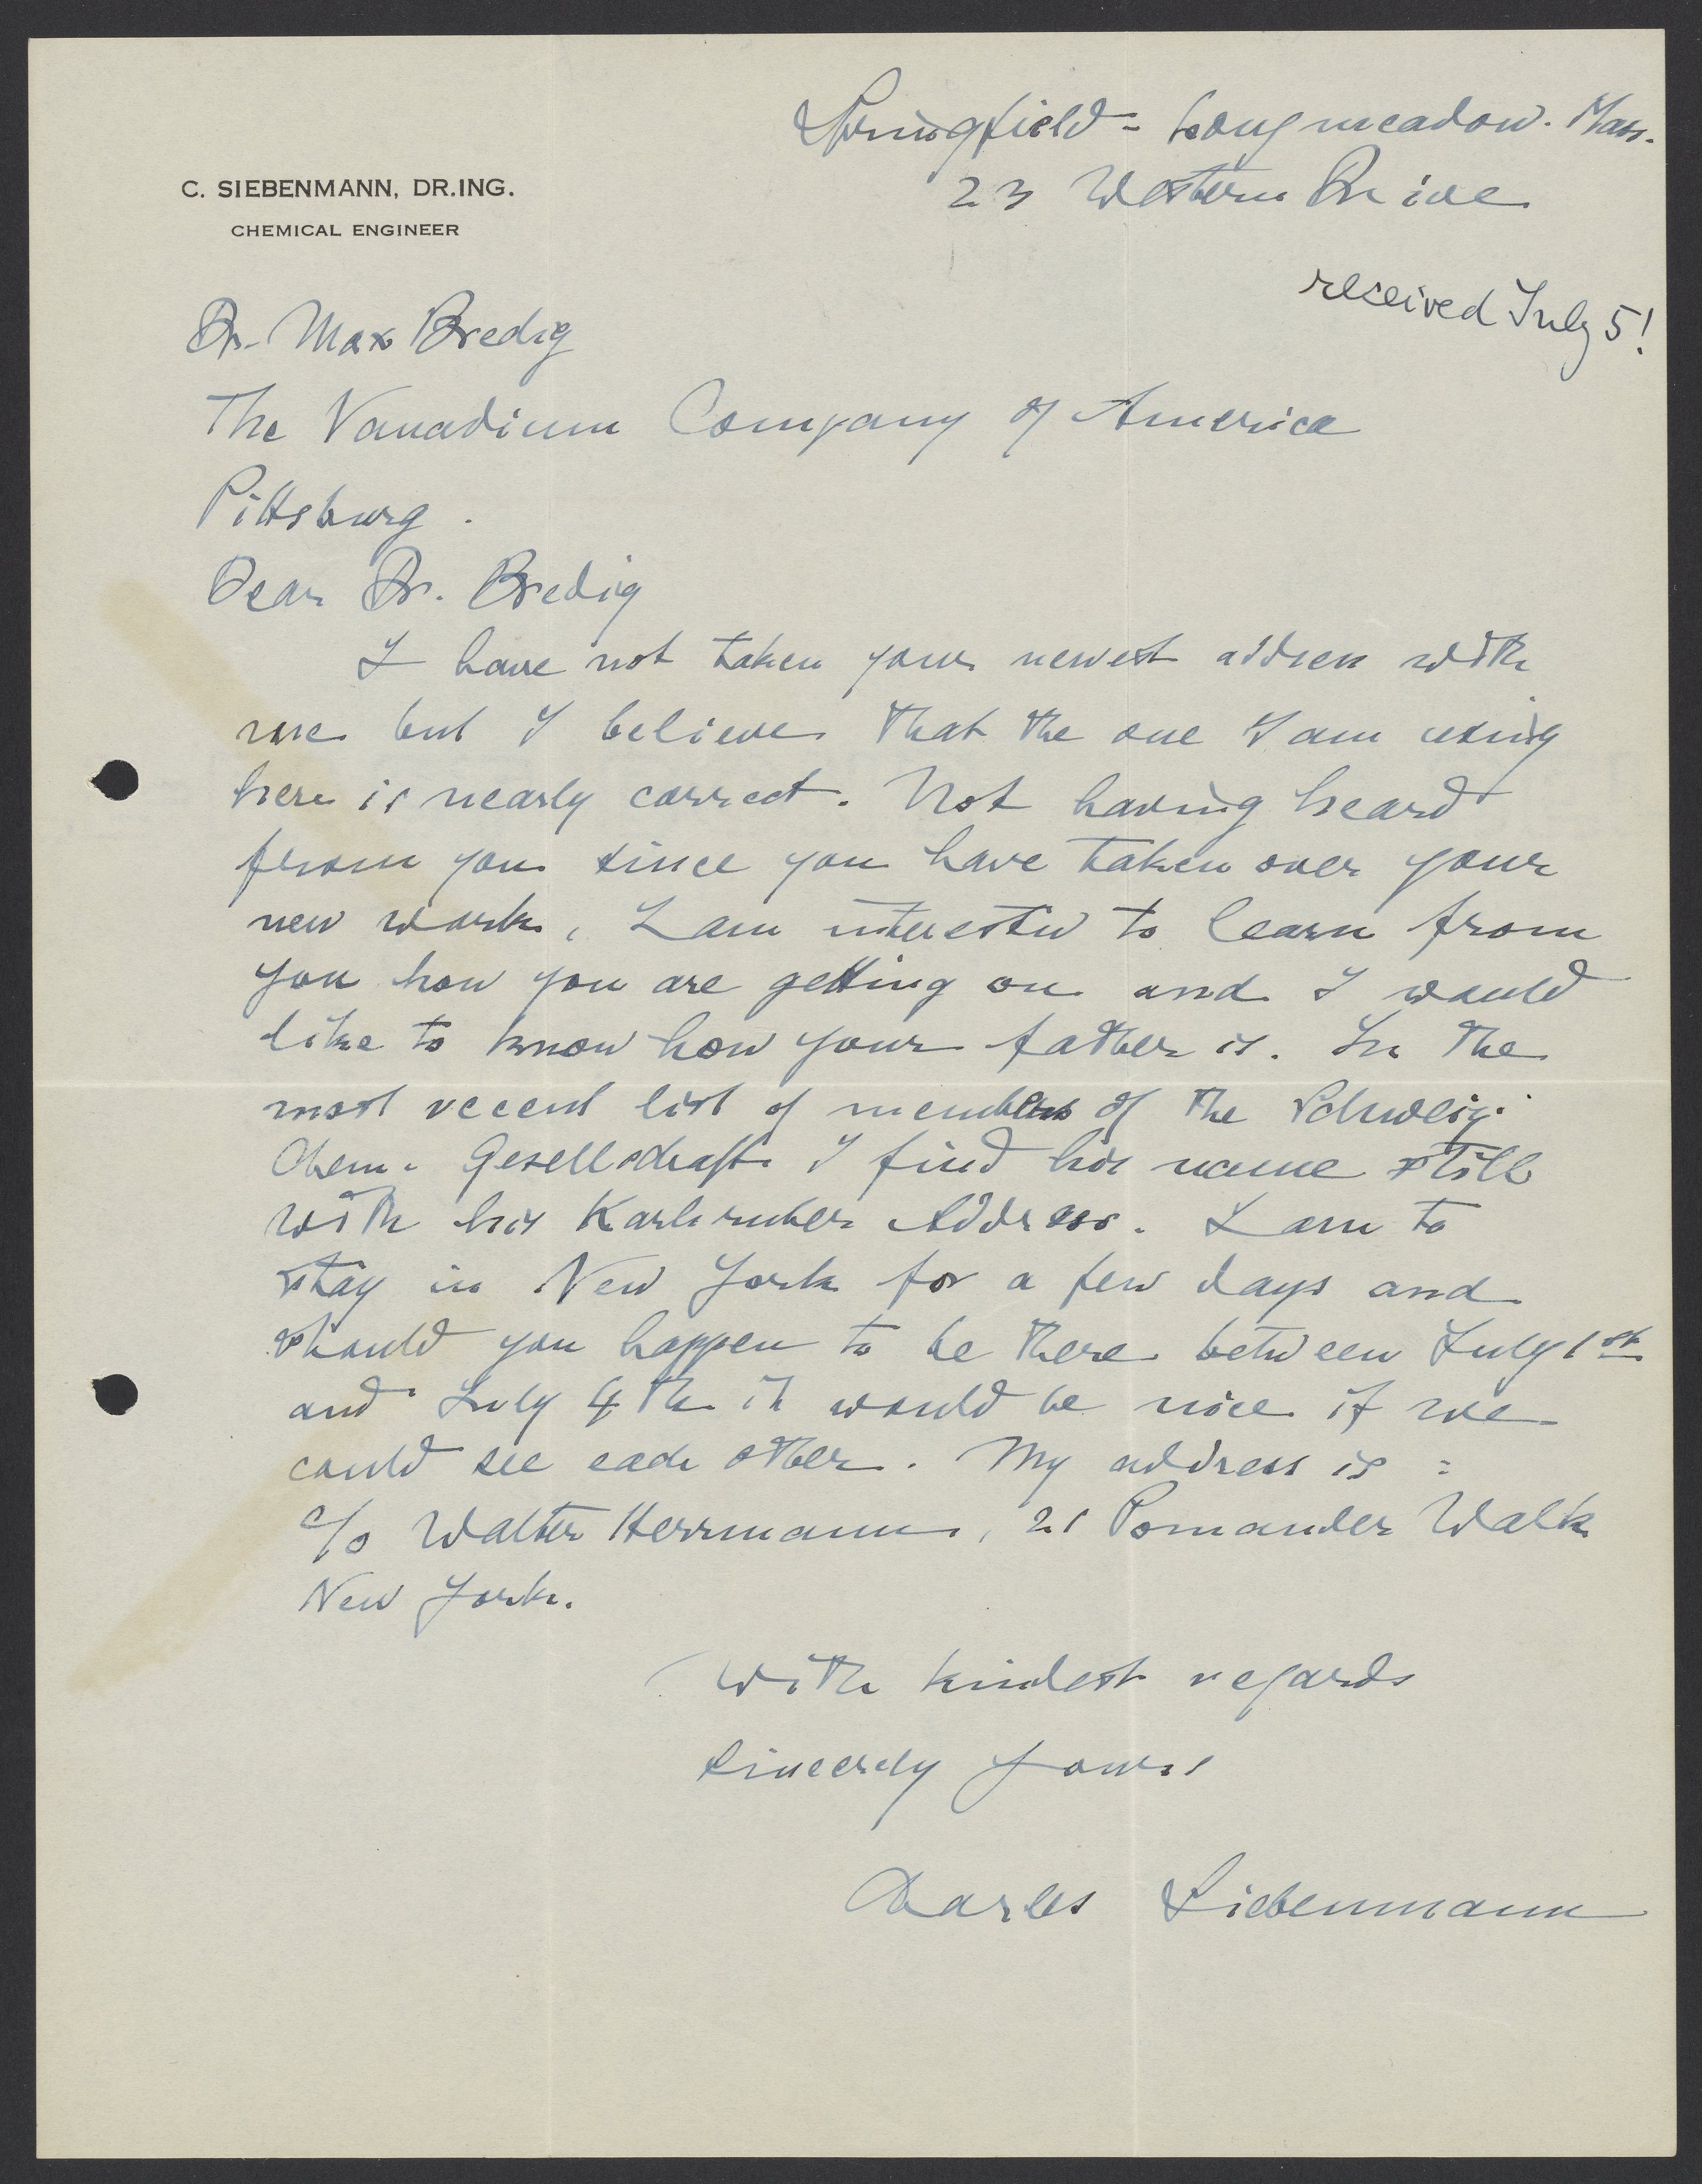 Springfield = Longmeadow. Mass.
23 Western Drive
C. SIEBENMANN, DR.ING.
CHEMICAL ENGINEER
received July 5!
Dr. Max Bredig
The Vanadium Company of America
Pittsburg.
Dear Dr. Bredig
I have not taken your newest address with
me but I believe that the one I am using
here is nearly correct. Not having heard
from you since you have taken over your
new work, I am interested to learn from
you how you are getting on and I would
like to know how your father is. In the
most recent list of members of the Schweiz.
Chem. Gesellschaft I find his name still
with his Karlsruher Address. I am to
stay in New York for a few days and
should you happen to be there between July 1st
and July 4th it would be nice if we
could see each other. My address is :
c/o Walter Herrmann, 21 Pomander Walk
New York.
With kindest regards
Sincerely yours
Charles Siebenmann